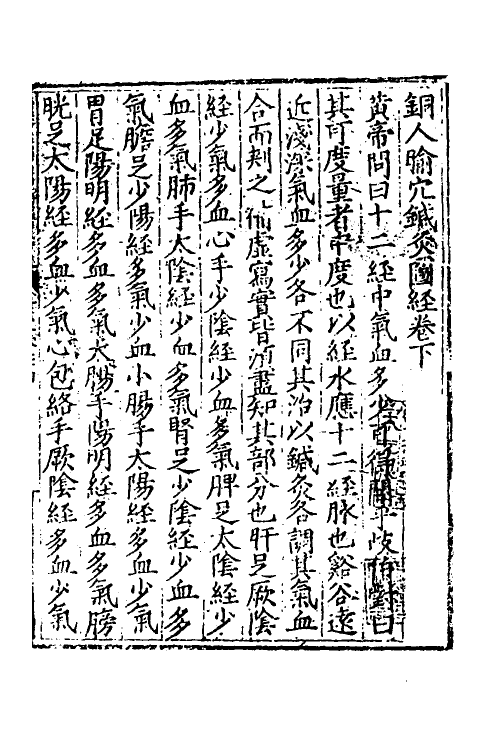 銅人腧穴鍼灸圖經卷下
黃帝問曰十二經中氣血多少可得聞乎岐伯對曰
其可度量者中度也以經水應十二經脉也谿谷遠
近淺深氣血多少各不同其治以鍼灸各調其氣血
合而刺之補虛寫實皆須盡知其部分也肝足厥陰
經少氣多血心手少陰經少血多氣脾足太陰經少
血多氣肺手太陰經少血多氣腎足少陰經少血多
氣膽足少陽經多氣少血小腸手太陽經多血少氣
胃足陽明經多血多氣大腸手陽明經多血多氣膀
胱足太陽經多血少氣心包絡手厥陰經多血少氣